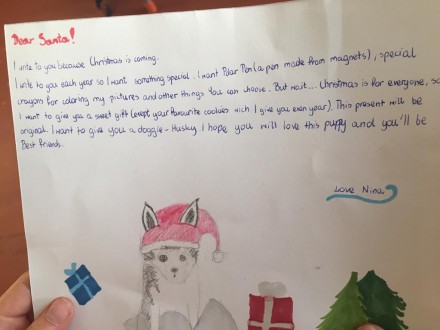 Dear Santa!
I write to you because Christmas is coming.
I write to you each year so I want something special. I want Polar Pen (a pen made from magnets), special
crayons for coloring my pictures and other things You can choose. But wait... Christmas is for everyone, so
I want to give you a sweet gift (exept your favourite cookies wich I give you every year). This present will be
original. I want to give you a doggie - Husky. I hope you will love this puppy and you'll be
Best friends.
Love Nina